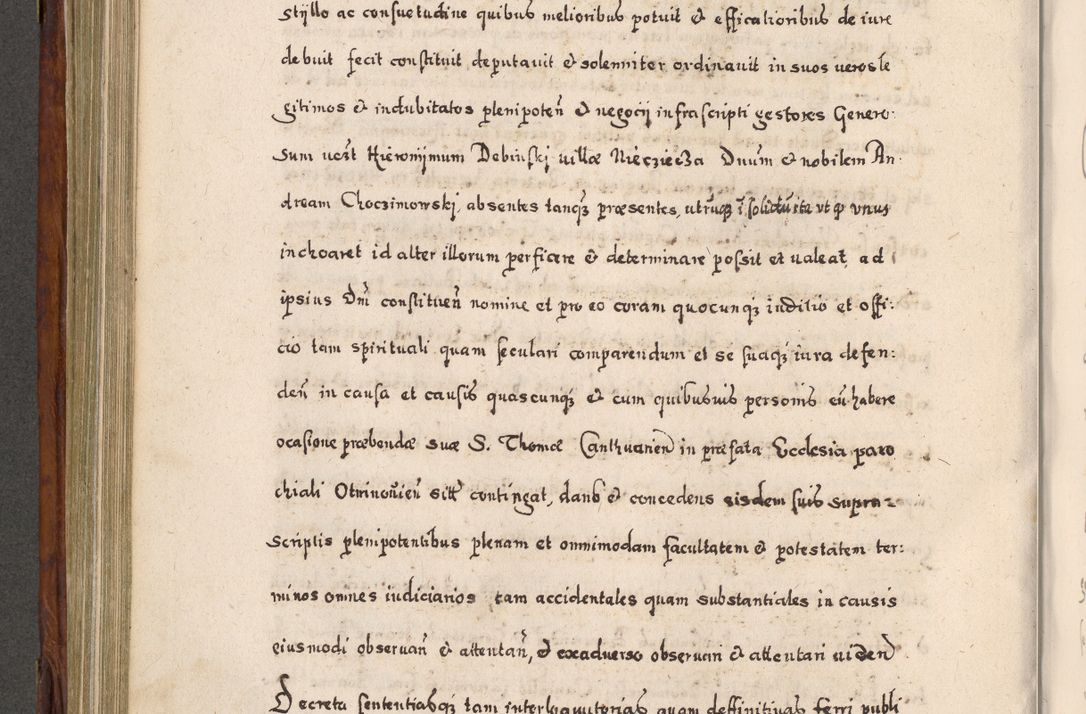 stijllo ac consuetudine quibus melioribus potuit & efficatioribus de iure
debuit fecit constituit deputauit & solenniter ordinauit in suos veros le
gitimos & indubitatos plenipoteñ & negocij infrascripti gestores Genero:
sum Hieronijmum Debinskj villæ Dnum & nobilem An:
dream Choczimowski, absentes tanqz præsentes, utrumqz solidu ita vt qz vnus
inchoaret id alter illorum perficere & determinare possit et ualeat, ad
ipsius Dni constitueñ nomine et pro eo coram quocunqz iuditio et offi:
cio tam spirituali quam seculari comparendum et se suaqz iura defen:
deñ in causa et causis quascunqz & cum quibusuis personis eũ habere
ocasione præbendæ suæ S. Thomæ Canthuarien in præfata Ecclesia paro
chiali contingat, dans & concedens eisdem suis supra:
scriptis plenipotentibus plenam et omnimodam facultatem & potestatem ter:
minos omnes iudiciarios tam accidentales quam substantiales in causis
eiusmodi obseruañ & attentañ, & exaduerso obseruari & attentari uiden
Decreta sententiasqz tam interloquutorias quam deffinitiuas ferri publi